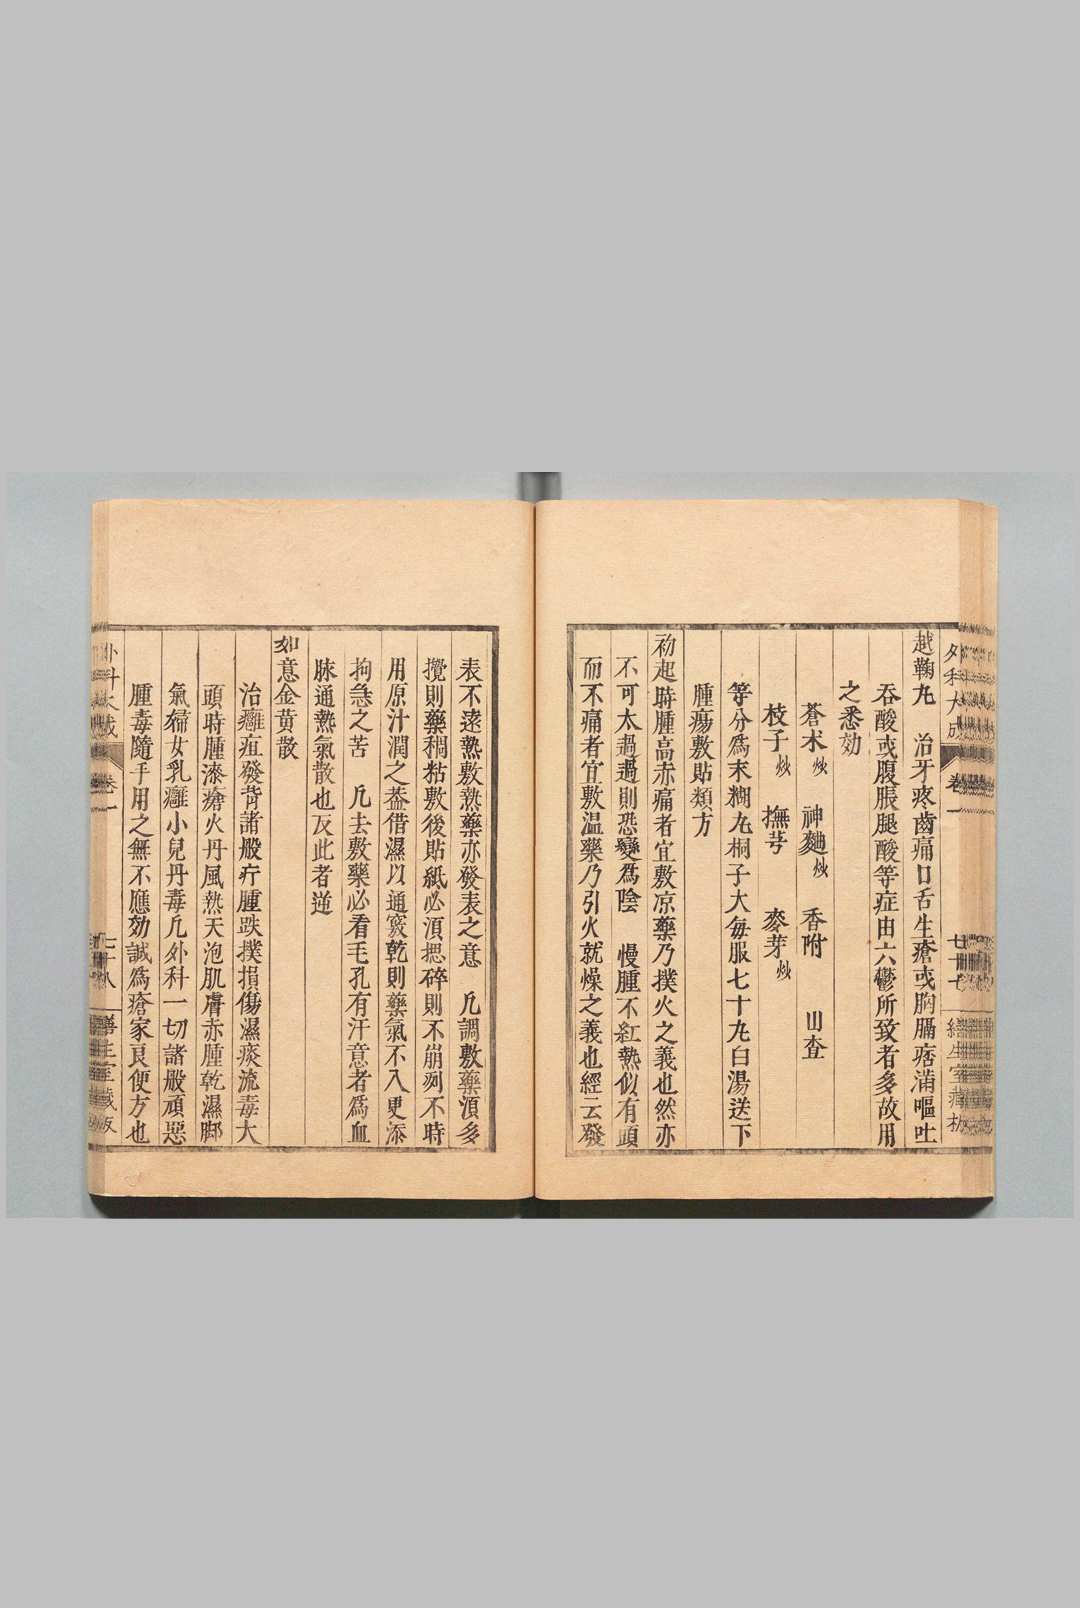 外科大成 卷一 七十七 繕生室藏板
越鞠丸 治牙疼齒痛口舌生瘡或胸膈痞滿嘔吐
吞酸或腹脹腿酸等症由六鬱所致者多故用
之悉効
蒼术炒 神麯炒 香附 山查
枝子炒 撫芎 麥芽炒
等分爲末糊丸桐子大每服七十丸白湯送下
腫瘍敷貼類方
初起時腫高赤痛者宜敷凉藥乃撲火之義也然亦
不可太過過則恐變爲陰 慢腫不紅熱似有頭
而不痛者宜敷温藥乃引火就燥之義也經云發
表不遠熱敷熱藥亦發表之意 凡調敷藥湏多
攪則藥稠粘敷後貼紙必湏摁碎則不崩裂不時
用原汁潤之葢借濕以通竅乾則藥氣不入更添
拘急之苦 凡去敷藥必看毛孔有汗意者爲血
脉通熱氣散也反此者逆
如意金黃散
治癰疽發背諸般疔腫跌撲損傷濕痰流毒大
頭時腫漆瘡火丹風熱天泡肌膚赤腫乾濕脚
氣㿏女乳癰小兒丹毒凡外科一切諸般頑惡
腫毒隨手用之無不應効誠爲瘡家良便方也
外科大成 卷一 七十八 繕生室藏板